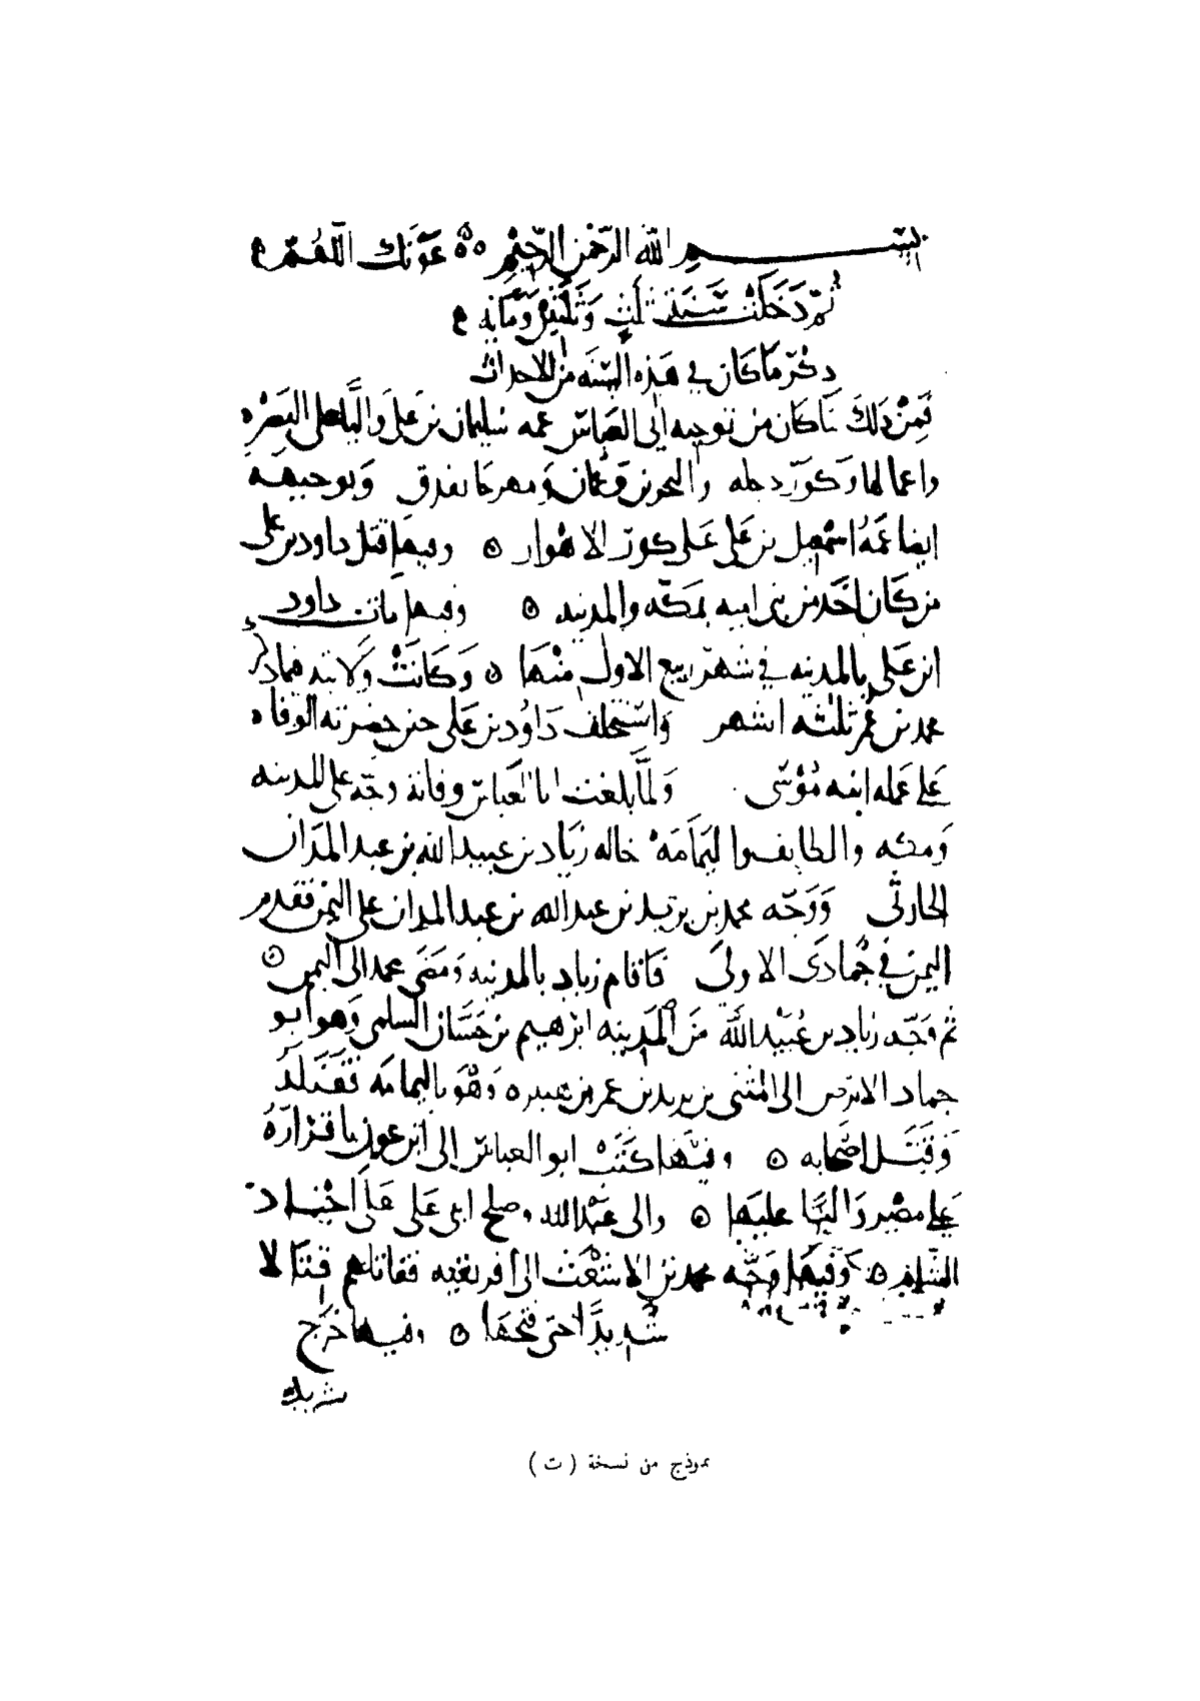 بسم الله الرحمن الرحيم ه عونك اللهم
ثم دخلت سنة ثلث وثلثين ومايه
ذكر ما كان في هذه السنه من الاحداث
فمن ذلك ما كان من توجيه ابي العباس عمه سليمان بن علي واليا على البصره
واعمالها وكور دجله والبحرين وعمان ومهرجانقذق وتوجيهه
ايضا عمه اسمعيل بن علي على كور الاهواز ه وفيها قتل داود بن علي
من كان اخذ من بني اميه بمكه والمدينه ه وفيها مات داود
ابن علي بالمدينه في شهر ربيع الاول منها ه وكانت ولايته فيما ذكر
محمد بن عمر ثلثه اشهر واستخلف داود بن علي حين حضرته الوفاه
على عمله ابنه موسى ولما بلغت ابا العباس وفاته وجه على المدينه
ومكه والطايف واليمامه خاله زياد بن عبيد الله بن عبد المدان
الحارثي ووجه محمد بن يزيد بن عبد الله بن عبد المدان على اليمن فقدم
اليمن في جمادى الاولى فاقام زياد بالمدينه ومضى محمد الى اليمن ه
ثم وجه زياد بن عبيد الله من المدينه ابرهيم بن حسان السلمي وهو ابو
حماد الابرص الى المثنى بن يزيد بن عمر بن هبيره وهو باليمامه فقتله
وقتل اصحابه ه وفيها كتب ابو العباس الى ابي عون باقراره
على مصر واليا عليها ه والى عبد الله وصلح ابني علي على اجناد
الشام ه وفيها وجه محمد بن الاشعث الى افريقيه فقاتلهم قتالا
شديدا حتى فتحها ه وفيها خرج
شريك
نموذج من نسخة ( ت )